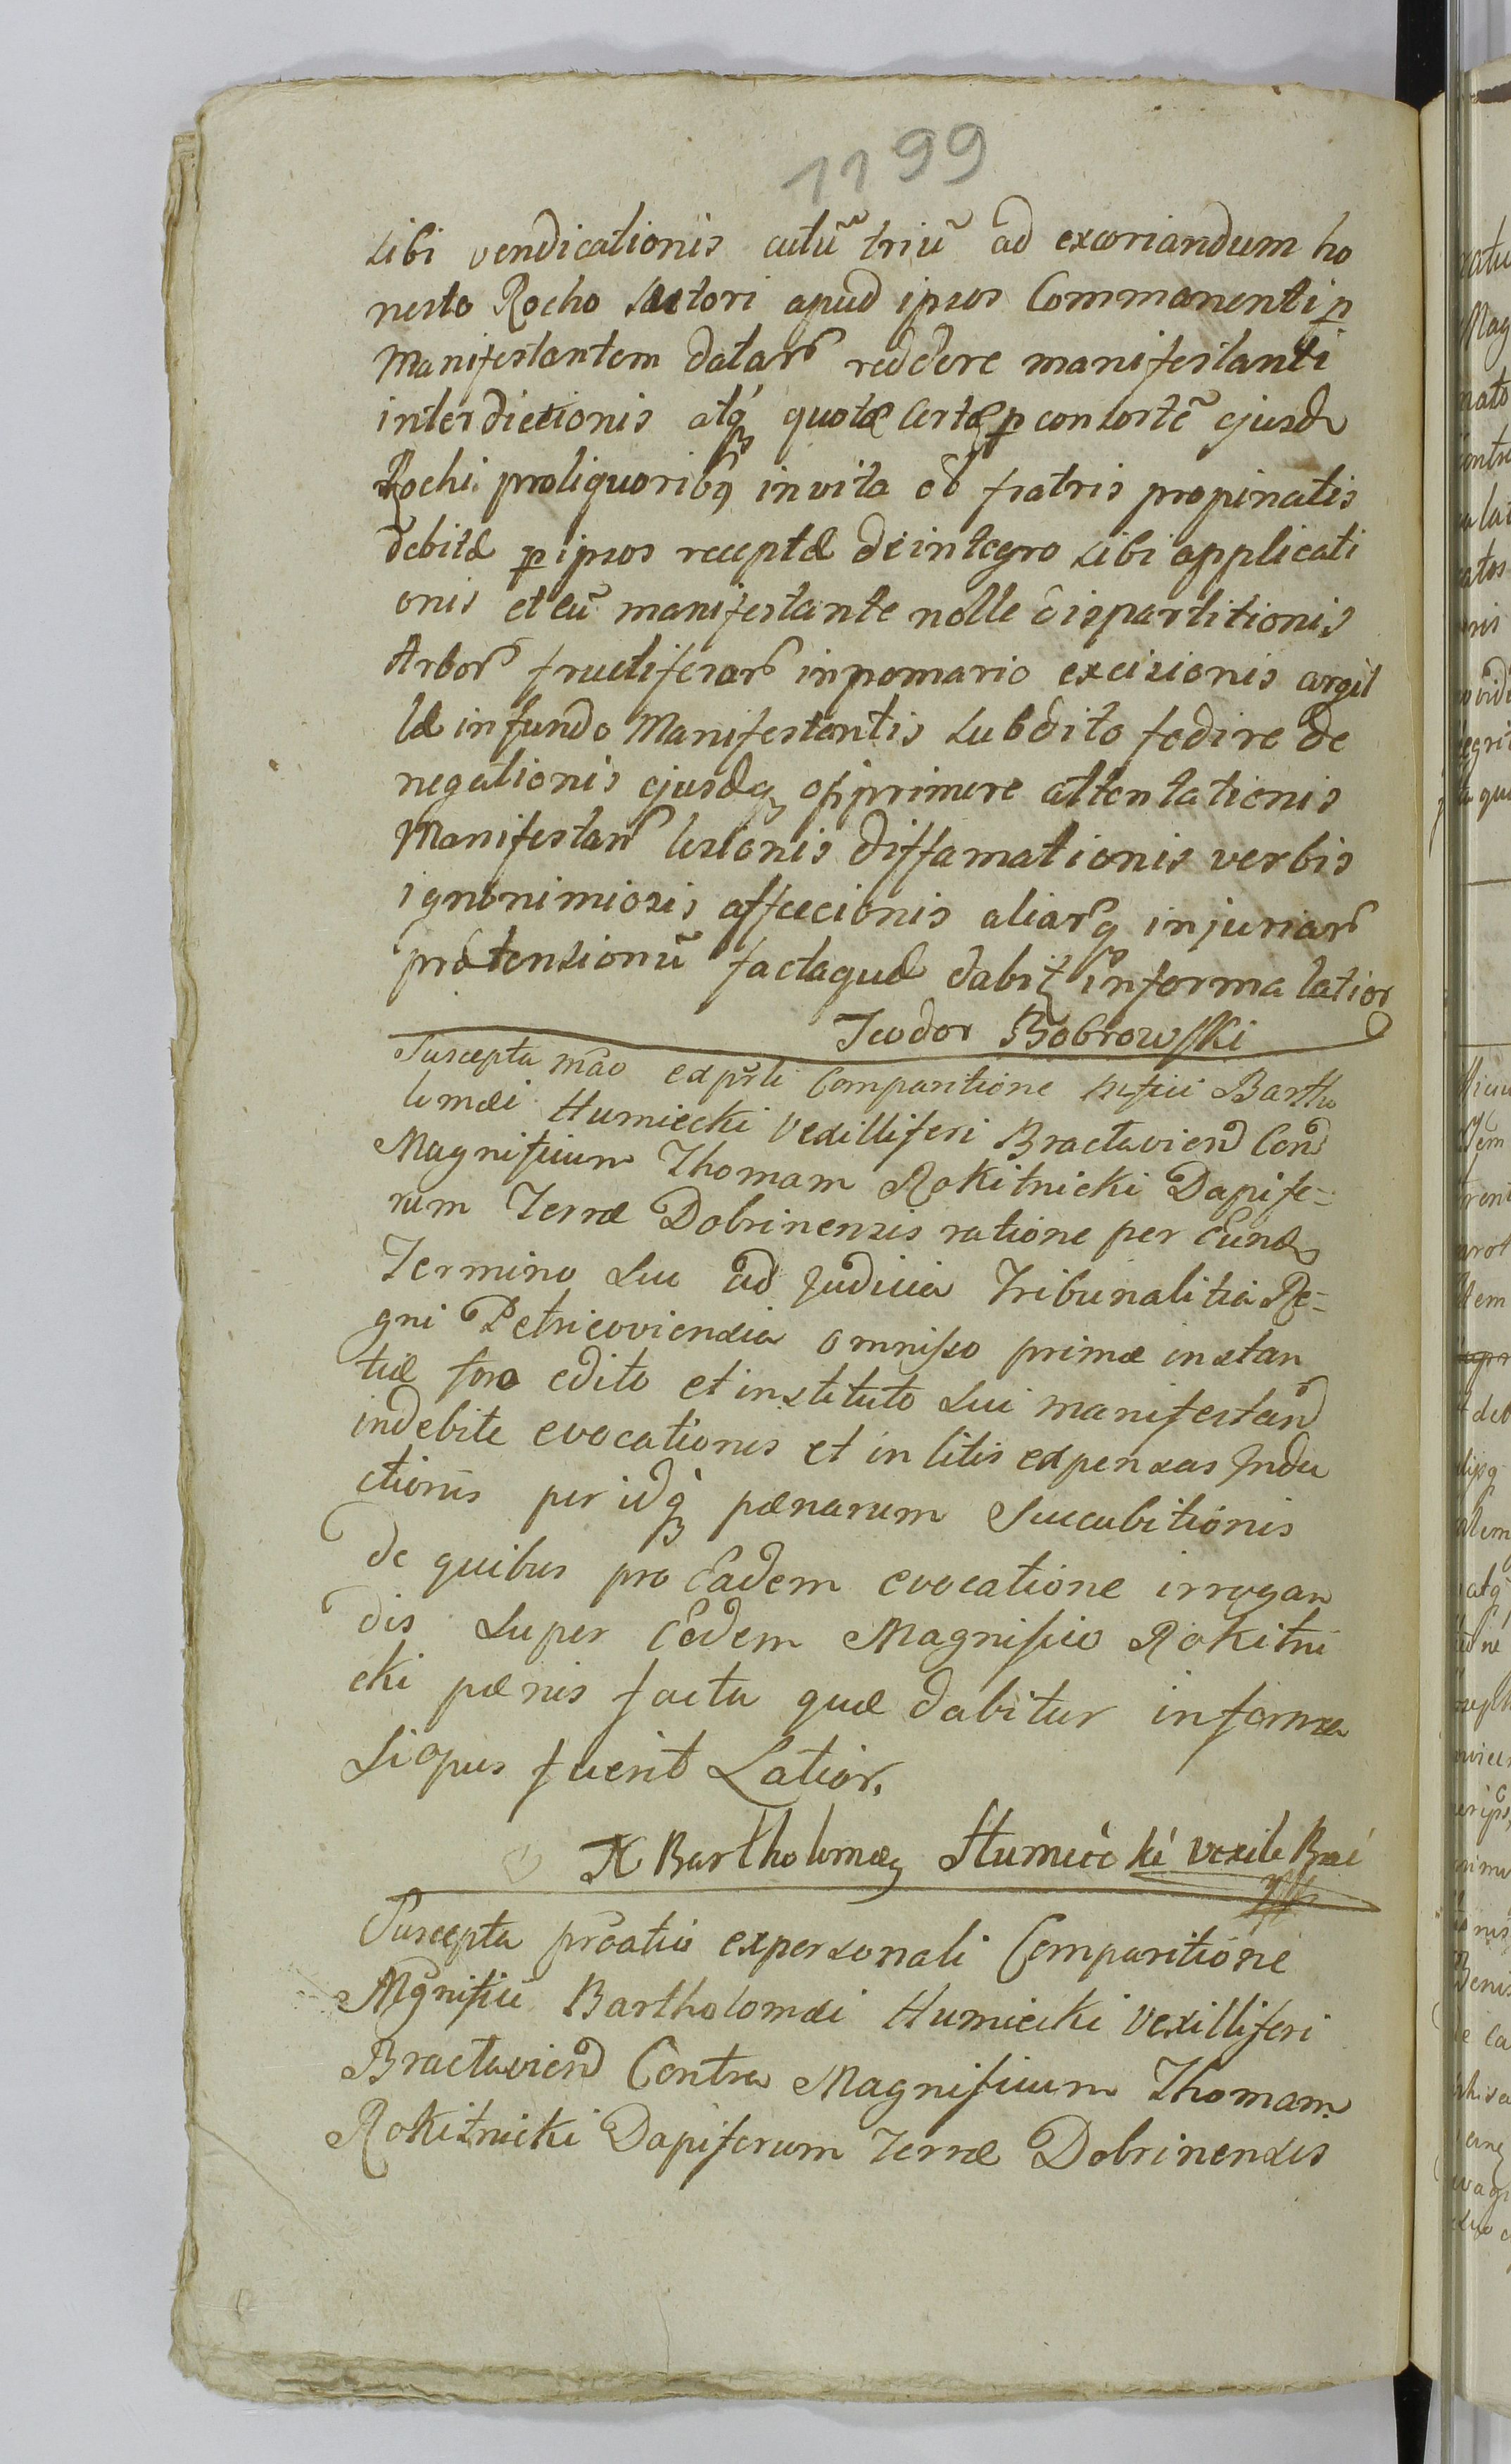 1199
sibi vendicationis cutũ triũ ad excoriandum ho
nesto Rocho Sutori apud ipsos Commanenti p
Manifestantem datar reddere manifestanti
interdictionis atq quotæ certæ p consortẽ ejusd
Rochi proliquoribq invita ob fratris propinatis
debitæ p ipsos receptæ deintegro sibi applicati
onis et cũ manifestante nolle dispartitionis
Arbor fructiferar inpomario excisionis argil
læ infundo Manifestantis subdito fodire de
negationis ejusdq opprimere attentationis
Manifestan lesionis diffamationis verbis
ignonimiosis affecionis aliarq injuriar
prætensionũ factaquæ dabit informa latior
Teodor Bobrowski
Suscepta mão exprli Comparitione Mfici Bartho
lomæi Humiecki Vexilliferi Bractavien Con
Magnificum Thomam Rokitnicki Dapife=
rum Terræ Dobrinensis ratione per Eund
Termino suo ad Judicia Tribunalitia Re=
gni Petricoviensia omnisso primæ instan
tiæ foro edito et instituto sui manifestan
indebite evocationis et in litis expensas Indu
ctionis per idq pænarum Succubitionis
de quibus pro Eadem evocatione irrogan
dis super Eodem Magnifico Rokitni
cki pænis facta quæ dabitur informa
siopus fuerit Latior.
X Bartholomæq Humiecki vexile Brai
Suscepta prõatio expersonali Comparitione
Mgnificii Bartholomæi Humiecki Vexilliferi
Bractavien Contra Magnificum Thomam
Rokitnicki Dapiferum Terræ Dobrinensis